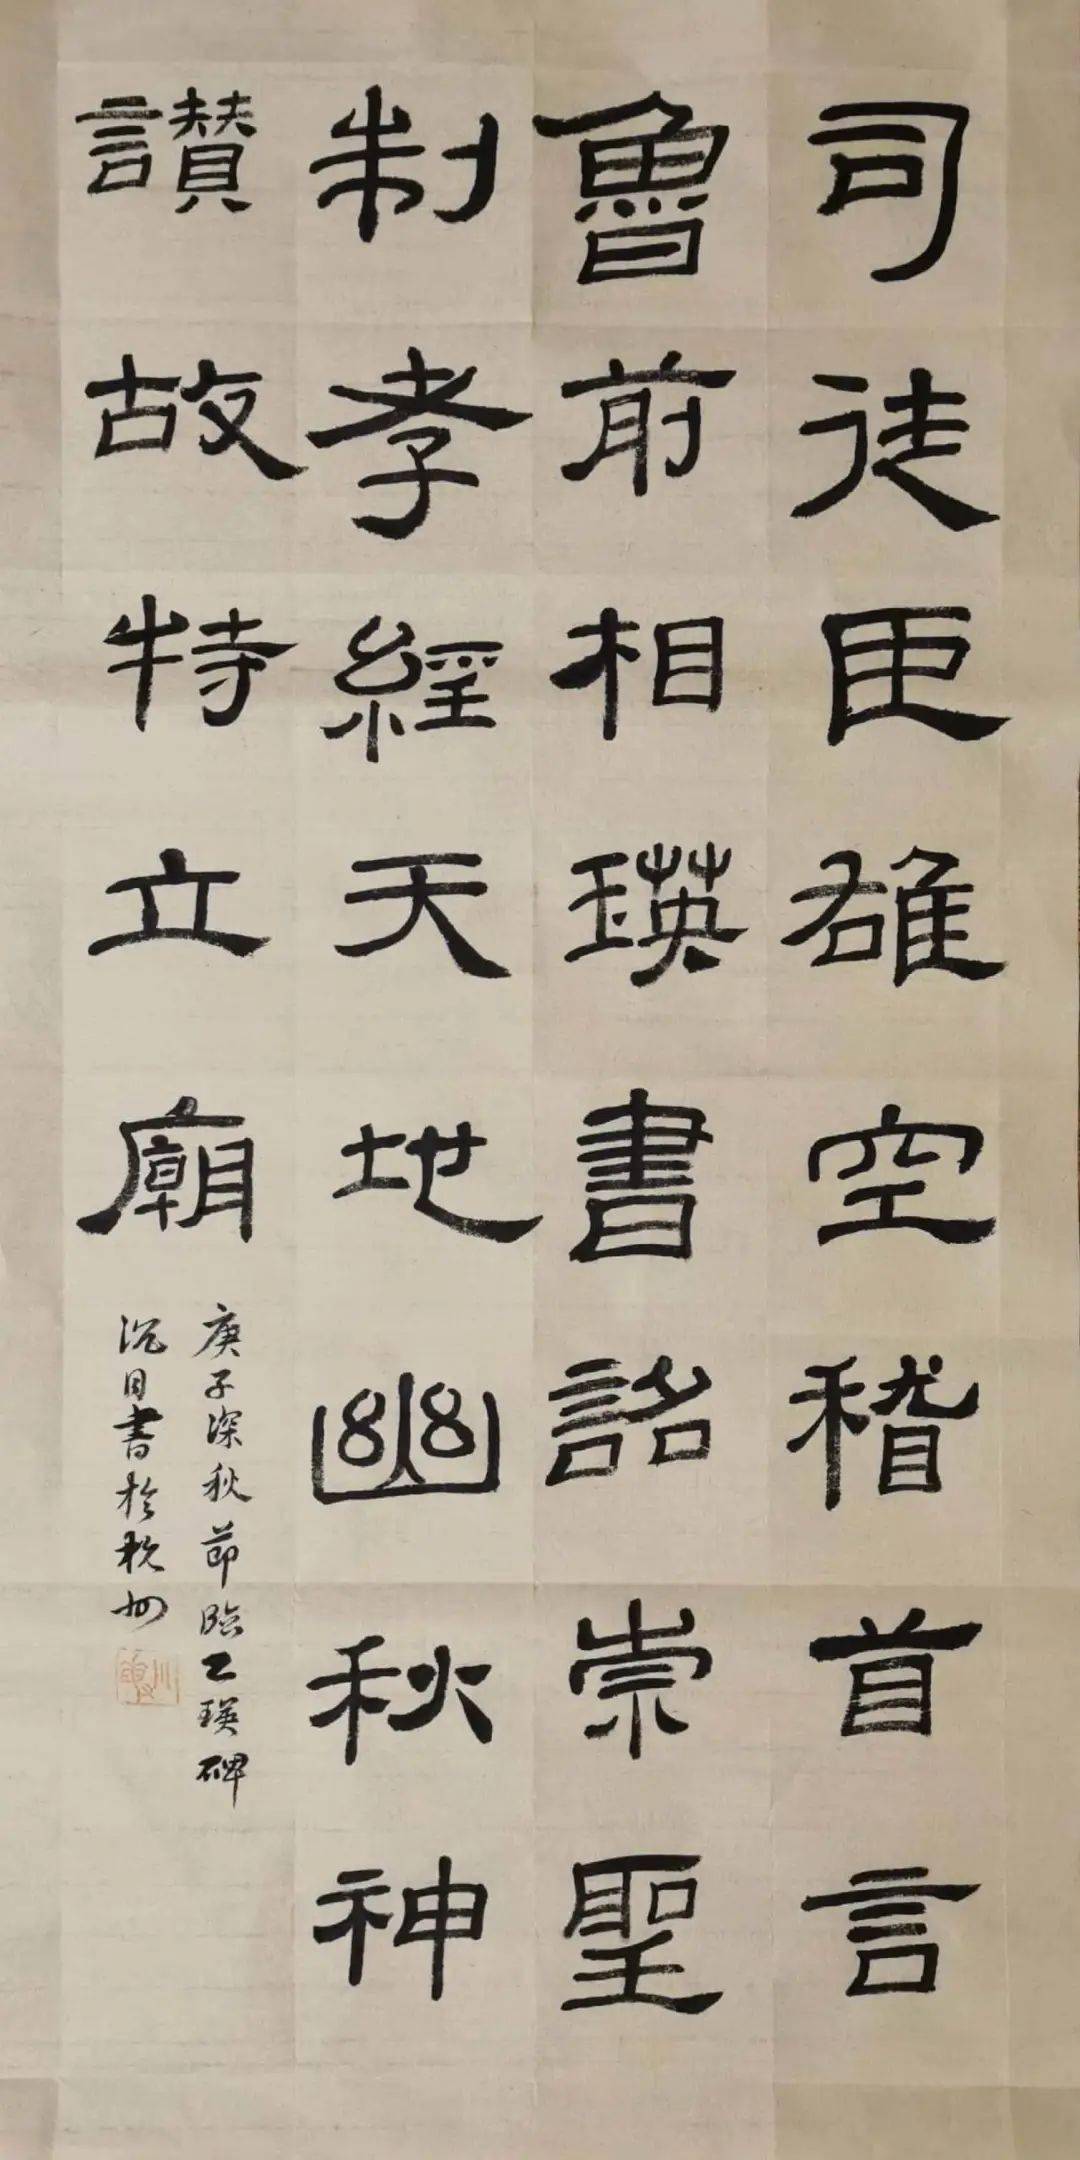 司徒臣雄空稽首言
魯前相瑛書詔崇聖
制孝經天地幽秋神
讃故特立廟
庚子深秋節臨乙瑛碑
書於杭州